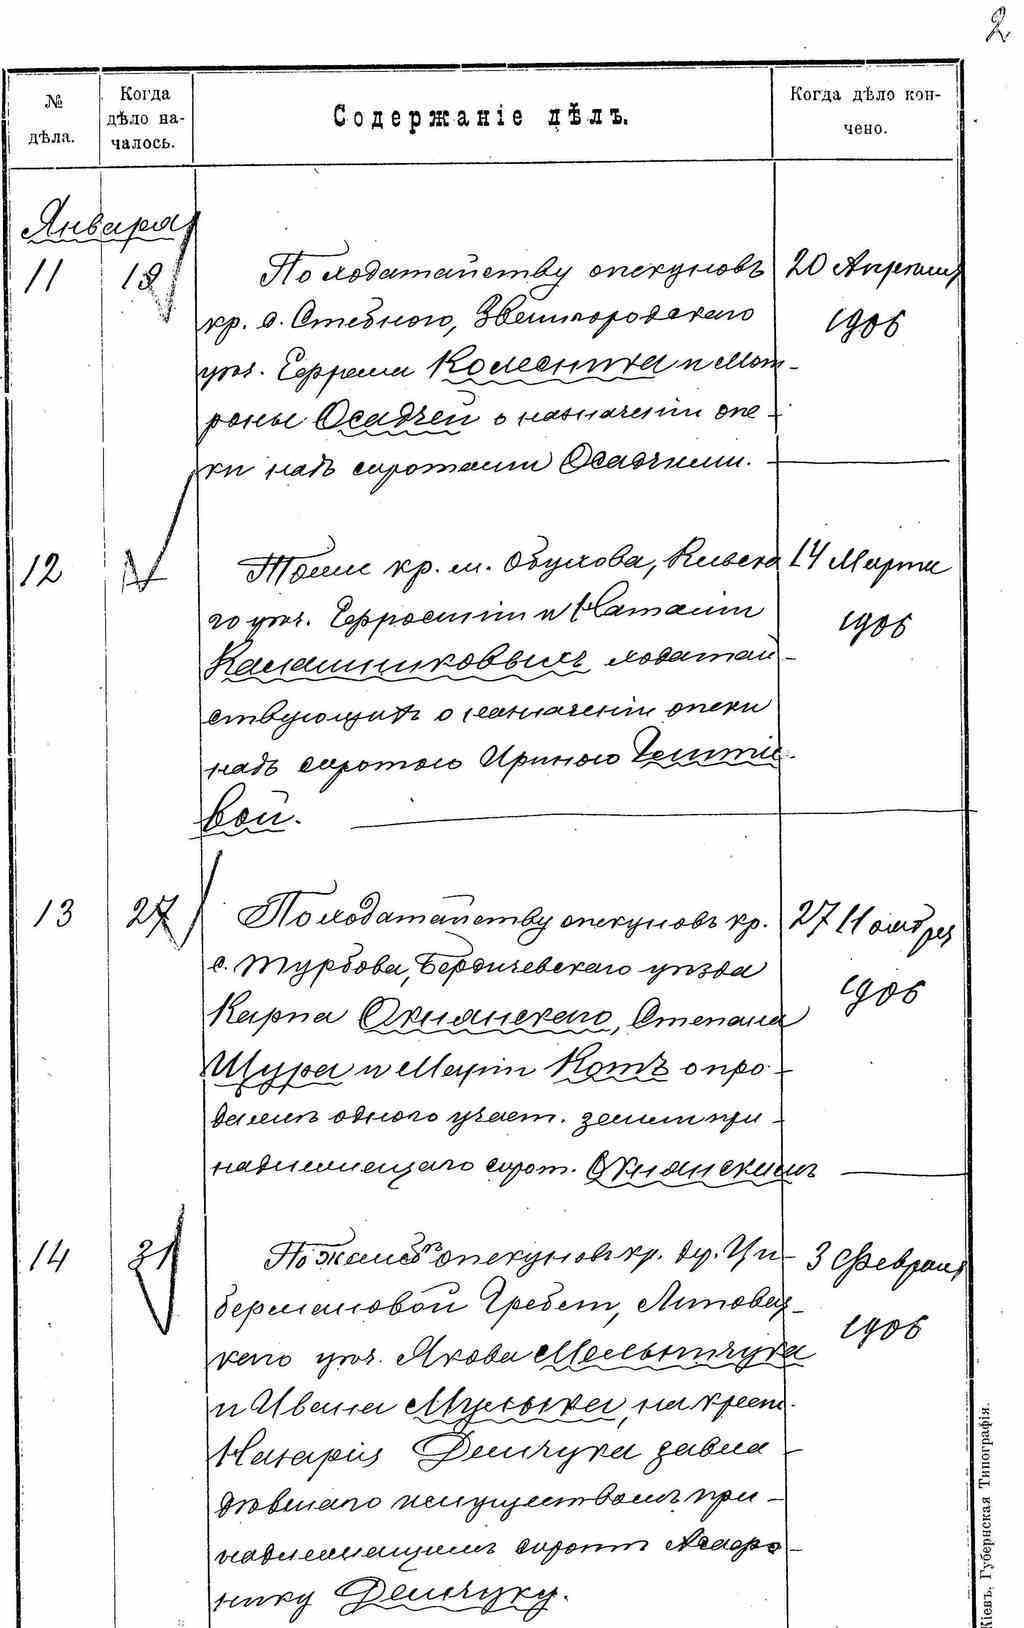 2
№ дѣла.
Когда дѣло началось.
Содержаніе дѣлъ.
Когда дѣло кончено.
Января
11 19 По ходатайству опекуновъ 20 Апрѣля
кр. с. Стебного, Звенигородскаго 1906
уѣз. Ефрема Колесника и Мот-
роны Осадчей о назначеніи опе-
ки надъ сиротами Осадчими.
12 Тоже кр. м. Обухова, Кіевска 14 Марта
го уѣз. Ефросиніи и Наталіи 1906
Калашниковыхъ ходатай-
ствующихъ о назначеніи опеки
надъ сиротою Ириною
вой.
13 27 По ходатайству опекуновъ кр. 27 Ноября
с. Турбова, Бердичевскаго уѣзда 1906
Карпа Окнянскаго, Степана
Щура и Маріи Котъ о про-
дажѣ одного участ. земли при-
надлежащаго сирот. Окнянскимъ
14 31 По жалобѣ опекуновъ кр. дер. Ци- 3 Февраля
бермановой Гребли, Липовец- 1906
каго уѣз. Якова Мельничука
и Ивана Мулыка, на крест.
Назарія Демчука завла-
дѣвшаго имуществомъ при-
надлежащимъ сиротѣ
нику Демчуку.
Кіевъ, Губернская Типографія.